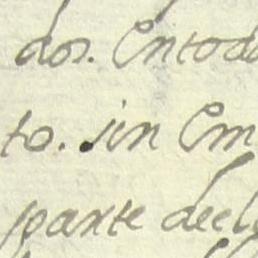 dos. Entoda
to. sin Em
parte decl